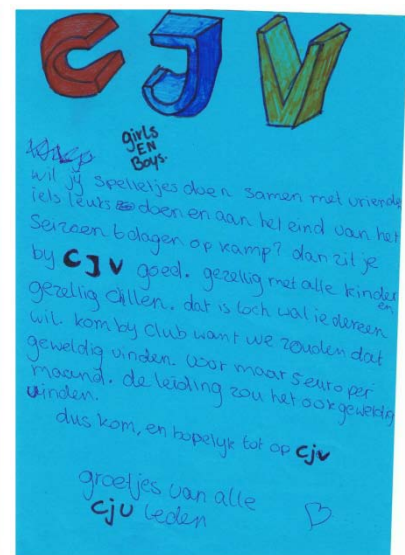 CJV
girls
EN
Boys.
wil jij spelletjes doen samen met vriende
iets leuks doen en aan het eind van het
Seizoen 6 dagen op kamp? dan zit je
by CJV goed. gezellig met alle kinder
en
gezellig cillen. dat is toch wat iedereen
wil. kom by club want we zouden dat
geweldig vinden. voor maar 5 euro per
maand. de leiding zou het ook geweldig
vinden.
dus kom, en hopelyk tot op cjv
groetjes van alle
cjv leden